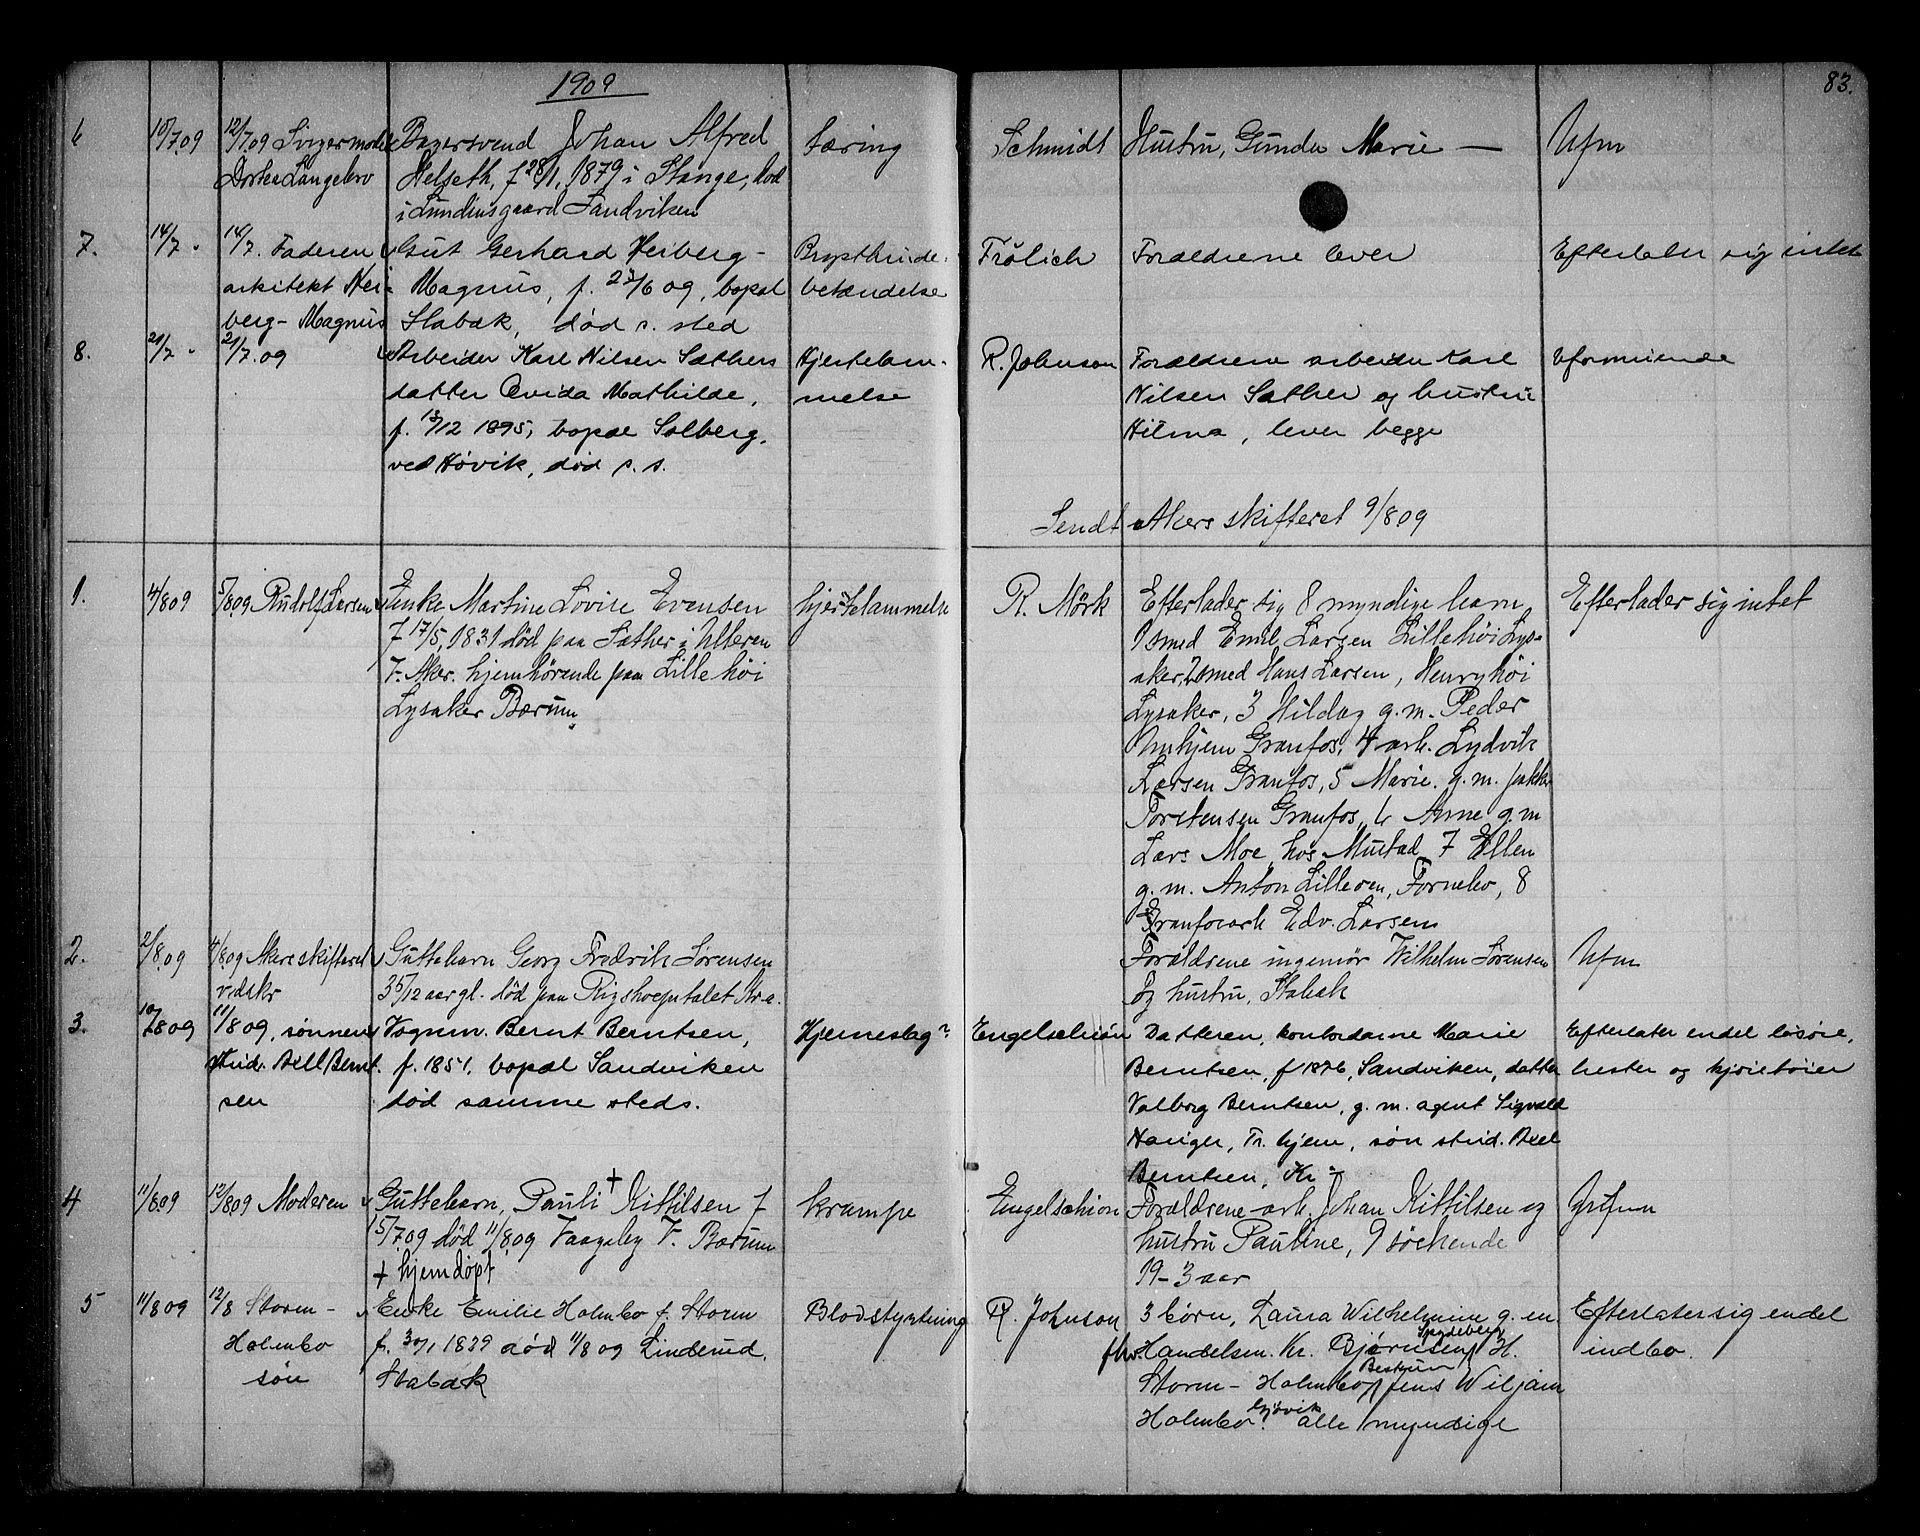 1909
83.
6
10/7.09
12/7.09 Svigermoder
Dortea Langebro
Bagersvend Johan Alfred
Helseth, f 28/1, 1879 i Stange, død
i Lundinsgaard Sandviken
tæring
Schmidt
Hustru, Gunda Marie —
Ufm
7.
14/7 "
14/7. Faderen
arkitekt Hei-
berg - Magnus
Gut Gerhard Heiberg -
Magnus, f. 23/6 09, bopæl
Stabæk, død s. sted
Brysthinde-
betændelse
Frölich
Forældrene lever
Efterlater sig intet
8.
21/7 "
21/7.09
Arbeider Karl Nilsen Sæthers
datter Ovida Mathilde,
f. 13/12 1895, bopæl Solberg,
ved Høvik, død s. s.
Hjertelam-
melse
R. Johnson
Forældrene arbeider Karl
Nilsen Sæther og hustru
Hilma, lever begge
Uformuende
Sendt Akers skifteret 9/8.09
1.
4/809
5/809 Rudolf Larsen
Enke Martine Lovise Evensen
f 17/5, 1831 død paa Sæther i Ulleren
V. Aker. hjemhørende paa Lille høi
Lysaker Bærum
hjertelammelse
R. Mörk
Efterlader sig 8 myndige barn
1 smed Emil Larsen Lillehöi Lys-
aker, 2 smed Hans Larsen, Henryhöi
Lysaker, 3 Hilda g. m. Peder
Granfos, 4 arb. Lydvik
Larsen Granfos, 5 Marie. g. m. pakk
Torstensen Granfos, 6 Anne g. m
Lars Moe hos Mustad 7 Ellen
g. m. Anton Lilleøen, Fornebo, 8
Granfosarb Edv. Larsen
Efterlader sig intet
2.
2/8.09
4/8.09 Akers skifteret
vidskr
Guttebarn Georg Fredrik Sörensen
3 5/12 aar gl. död paa Rigshospitalet Kr-a.
Forældrene ingeniör Wilhelm Sörensen
og hustru, Stabæk
Ufm
3.
10/809
11/8 09, sønnen
stud. Axell Bernt-
sen
Vognm. Bernt Berntsen,
f. 1851, bopæl Sandviken
død samme steds.
Hjerneslag?
Engelschiøn
Datteren, kontordame Marie
Berntsen, f 1876, Sandviken, datter
Valborg Berntsen, g. m. agent Sigvald
Hauger, Tr. hjem, søn stud. Axel
Berntsen, Kr -
Efterlater endel løsøre,
hester og kjøretøier
4
11/809
12/809 Moderen
Guttebarn, Pauli + Kittilsen f
15/7 09 død 11/8 09 Vaageby V. Bærum
+ hjemdøpt
krampe
Engelschiøn
Forældrene arb. Johan Kittilsen og
hustru Pauline, 9 söskende
19-3 aar
Ufm
5
11/8 09
12/8 Storm -
Holmbo
søn
Enke Emilie Holmbo f. Storm
f. 30/1 1829 død 11/8 09 Linderud,
Stabæk
Blodstyrtning
R. Johnson
3 börn, Laura Wilhelmine g. m.
Handelsm. Kr. Bjørnsen, Spydeberg H.
Storm - Holmbo, Bestum Jens Wiljam
Holmbo, Gjøvik alle myndige
Efterlater sig endel
indbo.